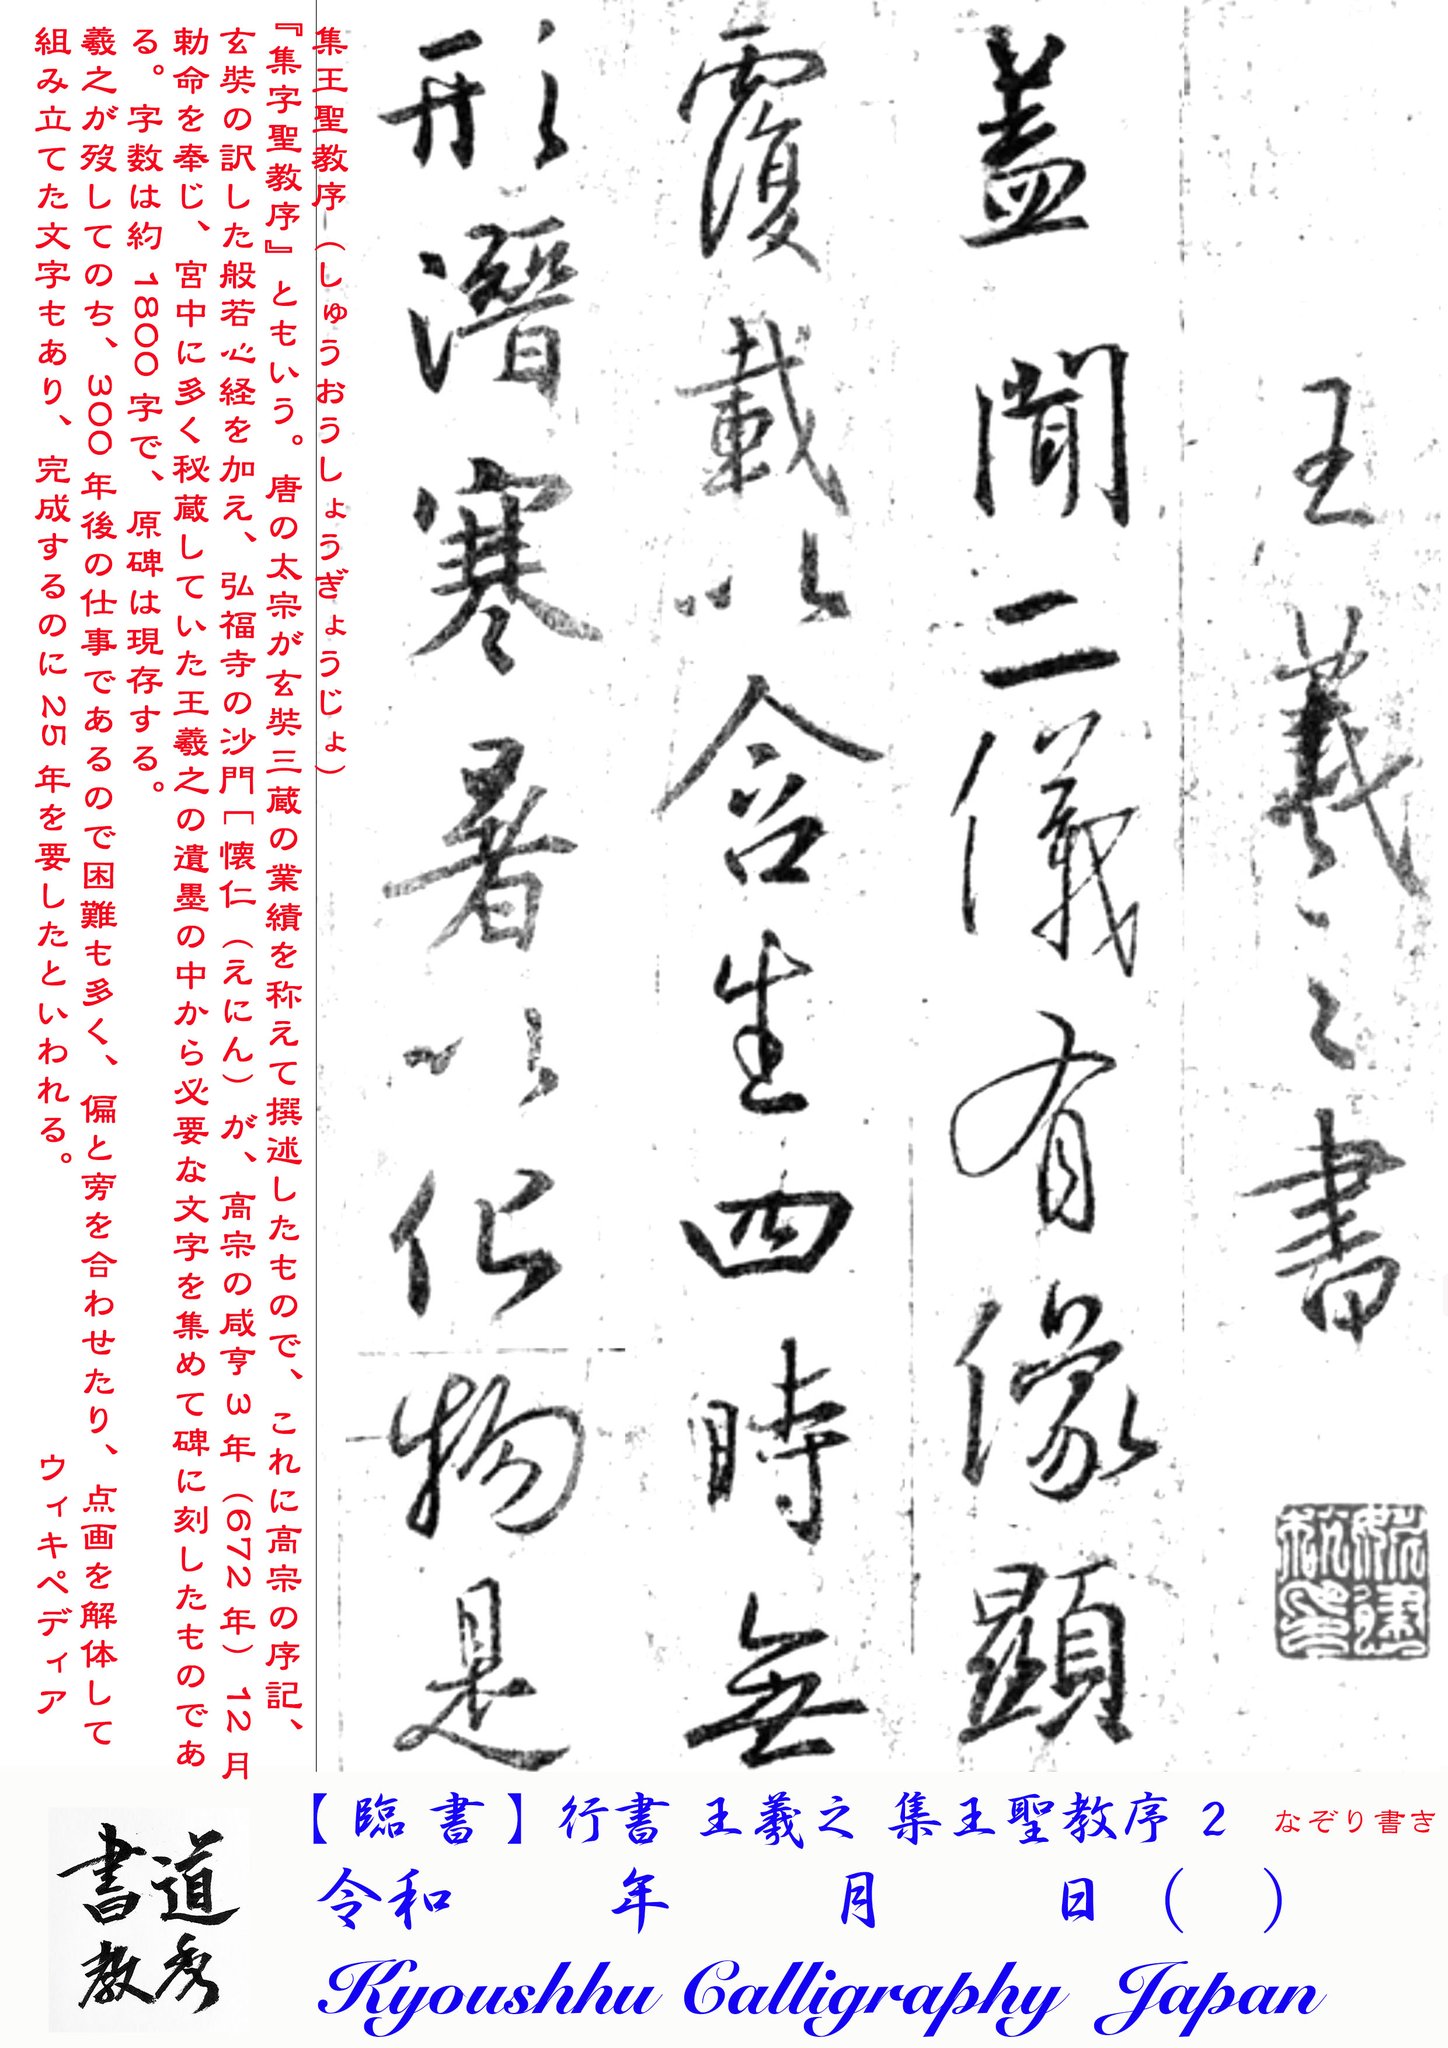 王羲之書
蓋聞二儀有像顯
覆載以含生四時無
形潛寒暑以化物是
集王聖教序（しゅうおうしょうぎょうじょ）
『集字聖教序』ともいう。唐の太宗が玄奘三蔵の業績を称えて撰述したもので、これに高宗の序記、
玄奘の訳した般若心経を加え、弘福寺の沙門［懐仁（えにん）が、高宗の咸亨3年（672年）12月
勅命を奉じ、宮中に多く秘蔵していた王羲之の遺墨の中から必要な文字を集めて碑に刻したものであ
る。字数は約1800字で、原碑は現存する。
羲之が歿してのち、300年後の仕事であるので困難も多く、偏と旁を合わせたり、点画を解体して
組み立てた文字もあり、完成するのに25年を要したといわれる。 ウィキペディア
【臨書】行書 王羲之 集王聖教序 2 なぞり書き
令和 年 月 日（ ）
Kyoushhu Calligraphy Japan
道秀
書教